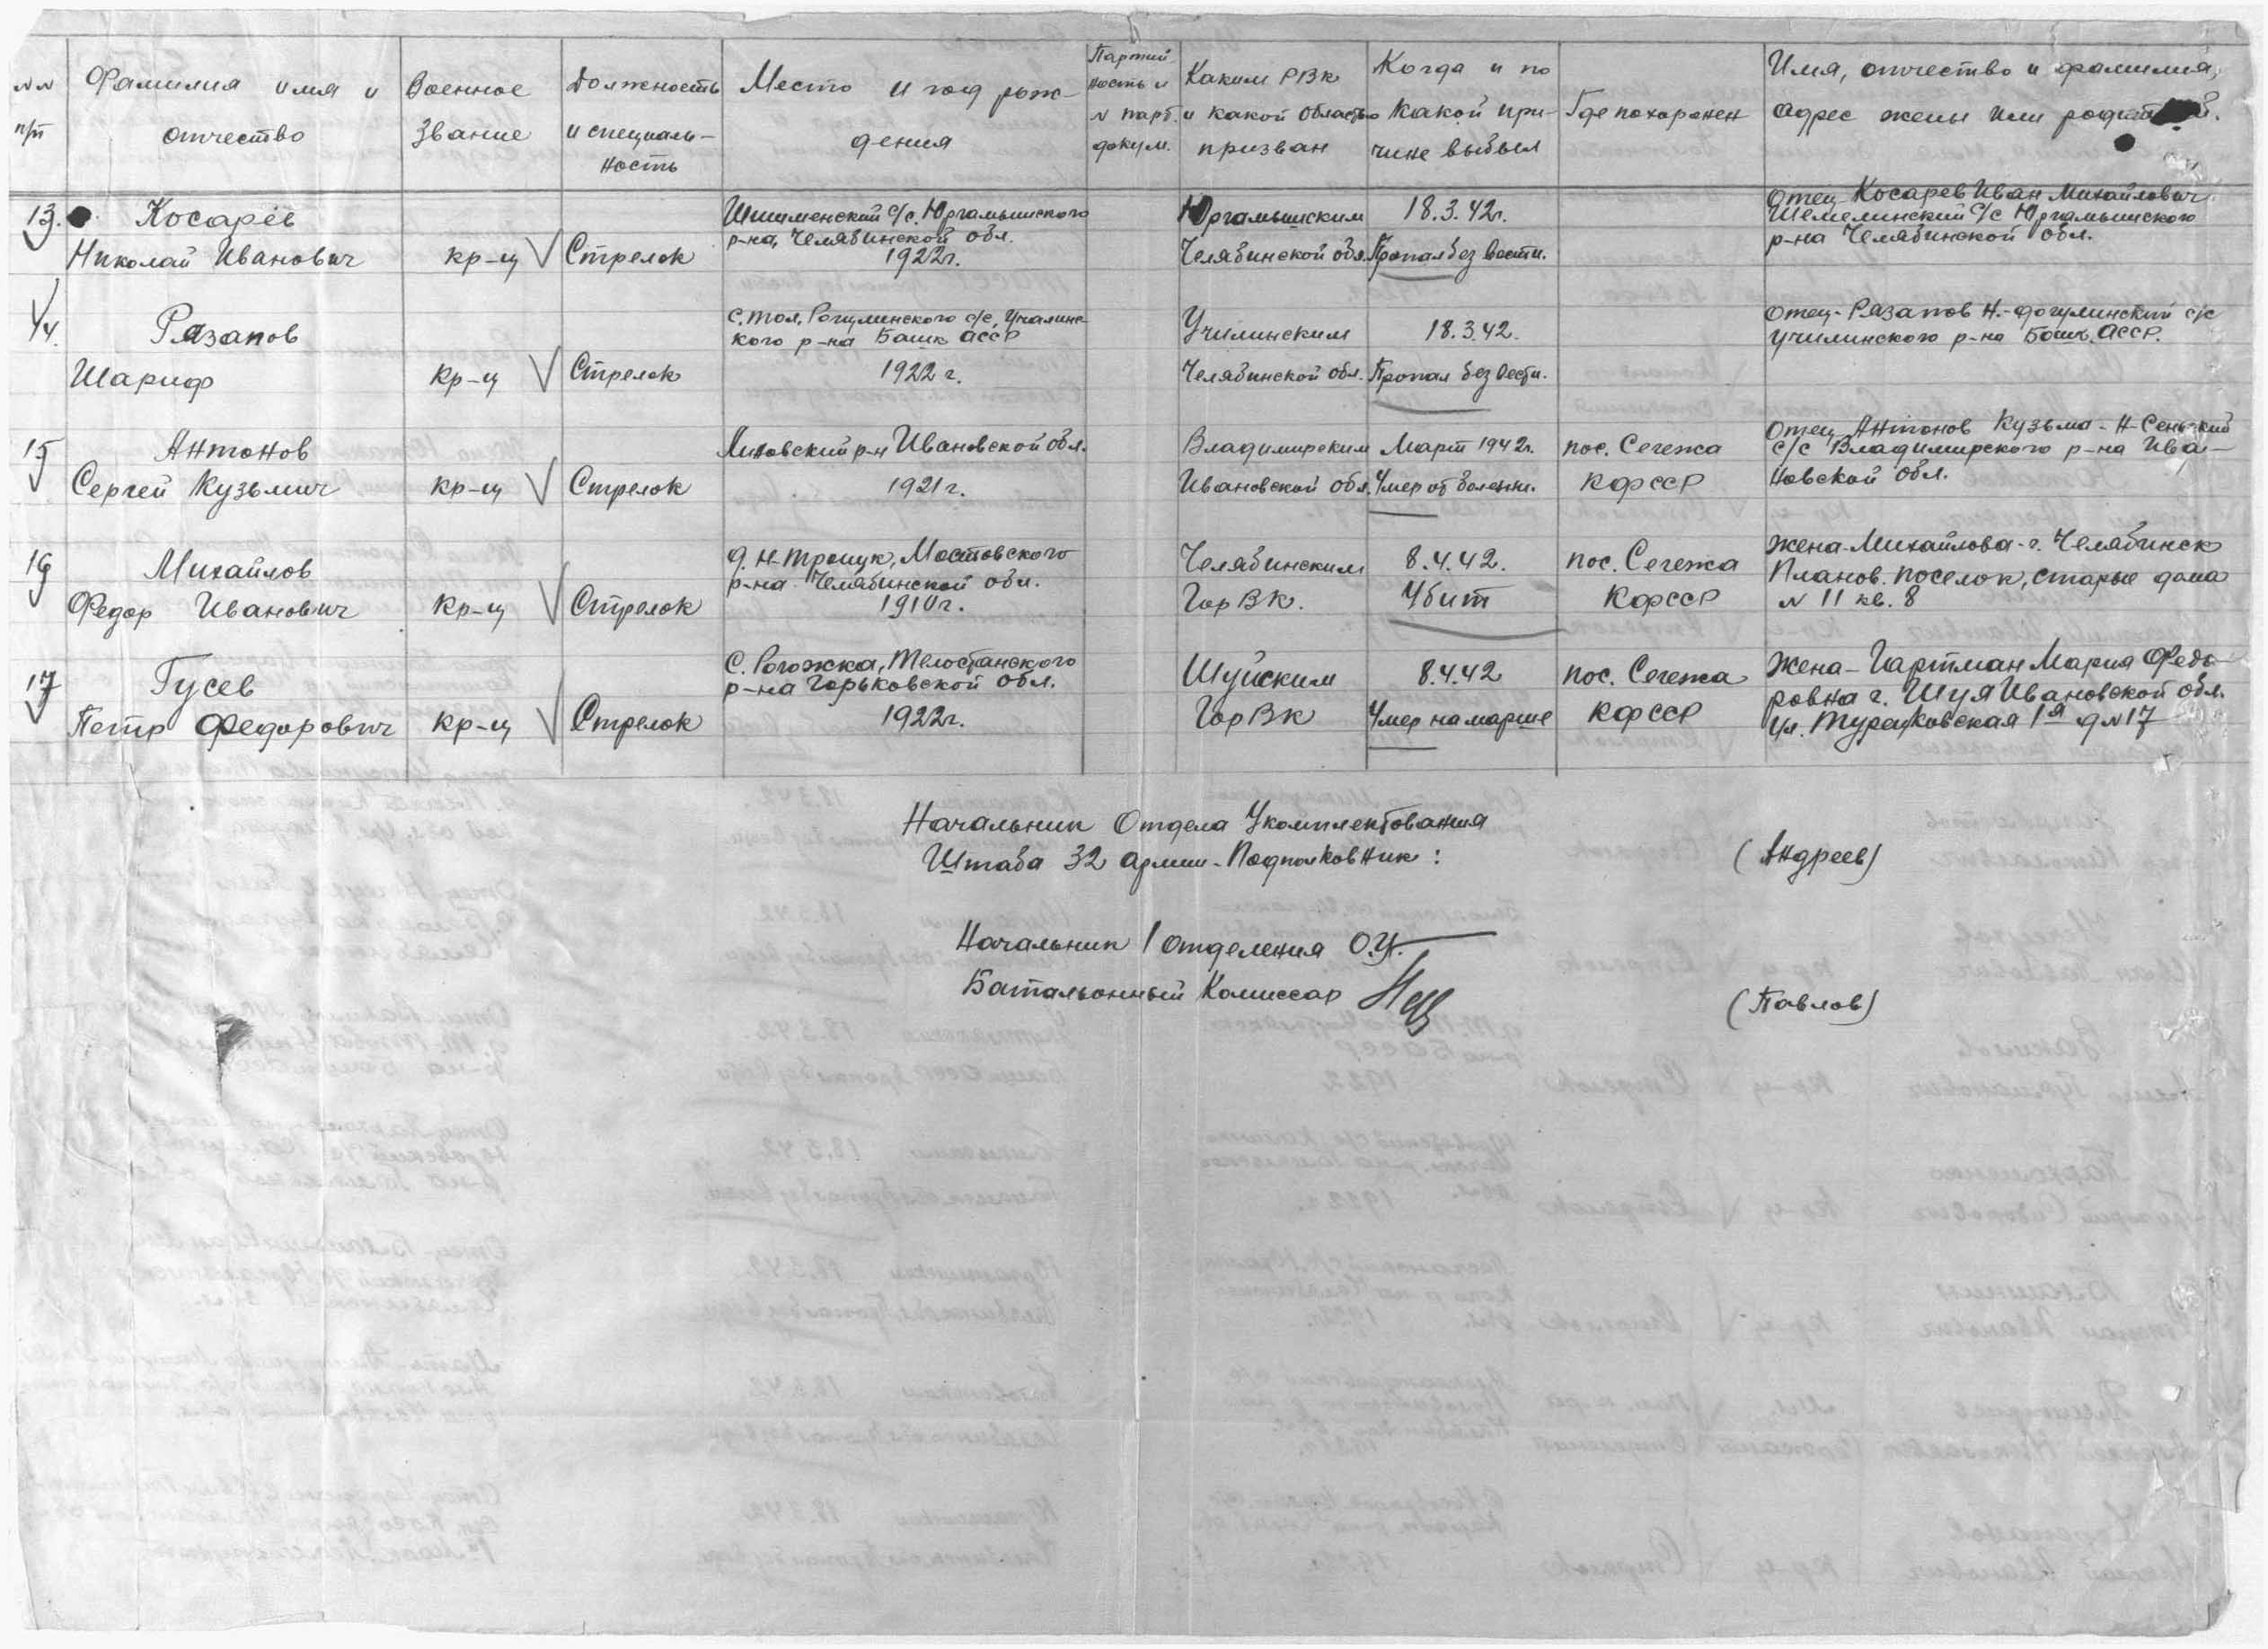 №№ п/п
Фамилия имя и отчество
Военное звание
Должность и специальность
Место и год рождения
Партийность и № парт. докум.
Каким РВК и какой областью призван
Когда и по какой причине выбыл
Где похоронен
Имя, отчество и фамилия,
адрес жены или
13. Косарев
Николай Иванович
кр-ц
Стрелок
с/с. Юргамышского
р-на, Челябинской обл.
1922г.
Юргамышским
Челябинской обл.
18.3.42г.
Пропал без вести.
Отец Косарев Иван Михайлович
Шемелинский с/с Юргамышского
р-на Челябинской обл.
14. Рязапов
Шариф
кр-ц
Стрелок
с/с, Учалинс-
кого р-на Башк АССР
1922 г.
Училинским
Челябинской обл.
18.3.42.
Пропал без вести.
Отец- Рязапов Н. с/с
Училинского р-на Башк. АССР.
15 Антонов
Сергей Кузьмич
кр-ц
Стрелок
р-н Ивановской обл.
1921г.
Владимирским
Ивановской обл.
Март 1942г.
Умер от болезни.
пос. Сегежа
КФССР
Отец Антонов Кузьма - Н-Сеньский
с/с Владимирского р-на Ива-
новской обл.
16 Михайлов
Федор Иванович
кр-ц
Стрелок
д. Н-Трощук, Мостовского
р-на Челябинской обл.
1910г.
Челябинским
ГорВК.
8.4.42.
Убит
пос. Сегежа
КФССР
Жена-Михайлова-г. Челябинск
Планов. поселок, старые дома
№ 11 кв. 8
17 Гусев
Петр Федорович
кр-ц
Стрелок
С. Рогожка,
р-на Горьковской обл.
1922г.
Шуйским
ГорВК
8.4.42
Умер на марше
пос. Сегежа
КФССР
Жена- Гартман Мария Федо-
ровна г. Шуя Ивановской обл.
ул. 1я д №17
Начальник Отдела Укомплектования
Штаба 32 армии-Подполковник:
(Андреев)
Начальник 1 отделения О.У.
Батальонный Комиссар
(Павлов)